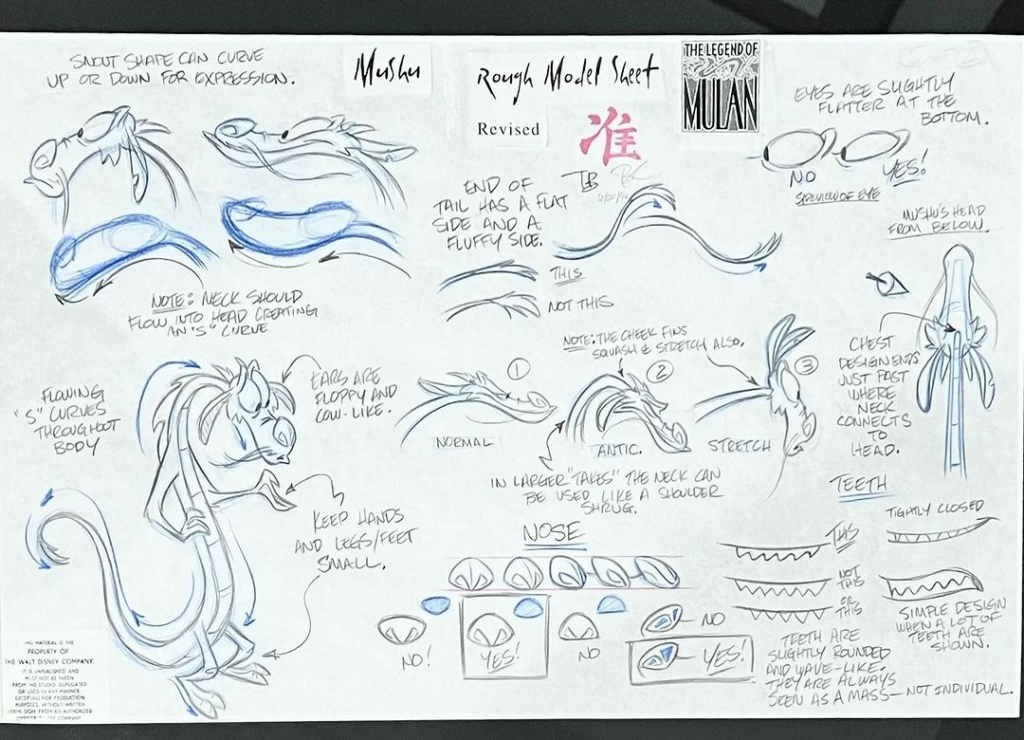 SNOUT SHAPE CAN CURVE
UP OR DOWN FOR EXPRESSION.
Mushu
Rough Model Sheet
Revised
准
THE LEGEND OF
MULAN
EYES ARE SLIGHTLY
FLATTER AT THE
BOTTOM.
NO
YES!
SIDEVIEW OF EYE
TB
END OF
TAIL HAS A FLAT
SIDE AND A
FLUFFY SIDE.
THIS
NOT THIS
MUSHU'S HEAD
FROM BELOW.
NOTE: NECK SHOULD
FLOW INTO HEAD CREATING
AN "S" CURVE
NOTE: THE CHEEK FINS
SQUASH & STRETCH ALSO.
CHEST
DESIGN ENDS
JUST PAST
WHERE
NECK
CONNECTS
TO
HEAD.
FLOWING
"S" CURVES
THROUGHOUT
BODY
EARS ARE
FLOPPY AND
COW-LIKE.
1
NORMAL
2
ANTIC.
3
STRETCH
IN LARGER "TAKES" THE NECK CAN
BE USED LIKE A SHOULDER
SHRUG.
KEEP HANDS
AND LEGS/FEET
SMALL.
NOSE
NO!
YES!
NO
NO
YES!
TEETH
THIS
NOT
THIS
OR
THIS
TIGHTLY CLOSED
SIMPLE DESIGN
WHEN A LOT OF
TEETH ARE
SHOWN.
TEETH ARE
SLIGHTLY ROUNDED
AND WAVE-LIKE.
THEY ARE ALWAYS
SEEN AS A MASS— NOT INDIVIDUAL.
THIS MATERIAL IS THE
PROPERTY OF
THE WALT DISNEY COMPANY.
IT IS UNPUBLISHED AND
MUST NOT BE TAKEN
FROM THE STUDIO, DUPLICATED
OR USED IN ANY MANNER,
EXCEPTING FOR PRODUCTION
PURPOSES, WITHOUT WRITTEN
PERMISSION FROM AN AUTHORIZED
OFFICER OF THE COMPANY